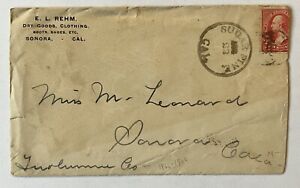 E. L. REHM.
DRY GOODS, CLOTHING,
BOOTS, SHOES, ETC.
SONORA, - CAL.
SUGAR PINE,
CAL.
Miss M. Leonard
Sonora
Tuolumne Co Cala